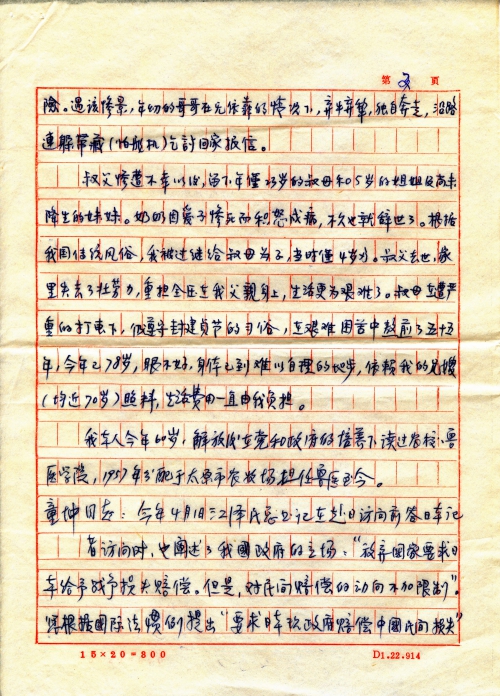 第 2 页
险。遇该惨景,年幼的哥哥在无依靠的情况下,弃牛弃犂,独自奔走,沿路
连躲带藏(怕敌机)乞讨回家报信。
叔父惨遭不幸以后,留下年仅23岁的叔母和5岁的姐姐及尚未
降生的妹妹。奶奶因爱子惨死而积怨成病,不久也就辞世了。根据
我国传统风俗,我被过继给叔母为子,当时仅4岁。叔父去世,家
里失去了壮劳力,重担全压在我父亲身上,生活更为艰难了。叔母在遭严
重的打击下,但遵守封建贞节的习俗,在艰难困苦中熬煎了五十五
年,今年已78岁,眼不好,身体已到难以自理的地步,依赖我的兄嫂
(均近70岁)照料,生活费由一直由我负担。
我本人今年60岁,解放后在党和政府的培养下读过农校、兽
医学院,1957年分配于太原市农牧场担任兽医至今。
童增同志:今年4月1日江泽民总书记在赴日访问前答日本记
者访问时,也阐述了我國政府的立场:“放弃國家要求日
本给予战争损失赔偿。但是,对民间赔偿的动向不加限制”。
根据国际法惯例提出“要求日本政府赔偿中國民间损失”
15×20=300
D1.22.914